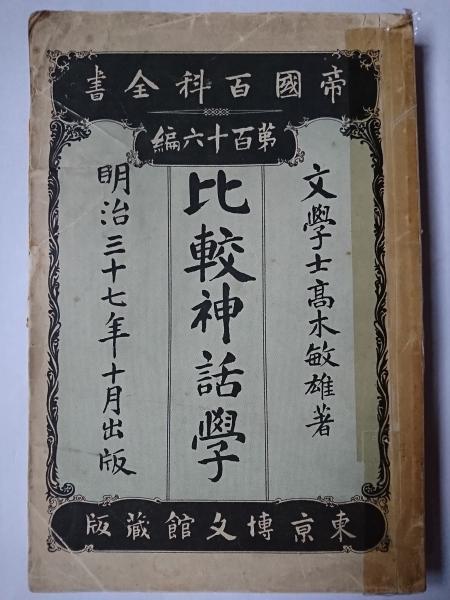 帝國百科全書
第百十六編
文學士髙木敏雄著
比較神話學
明治三十七年十月出版
東京博文館藏版